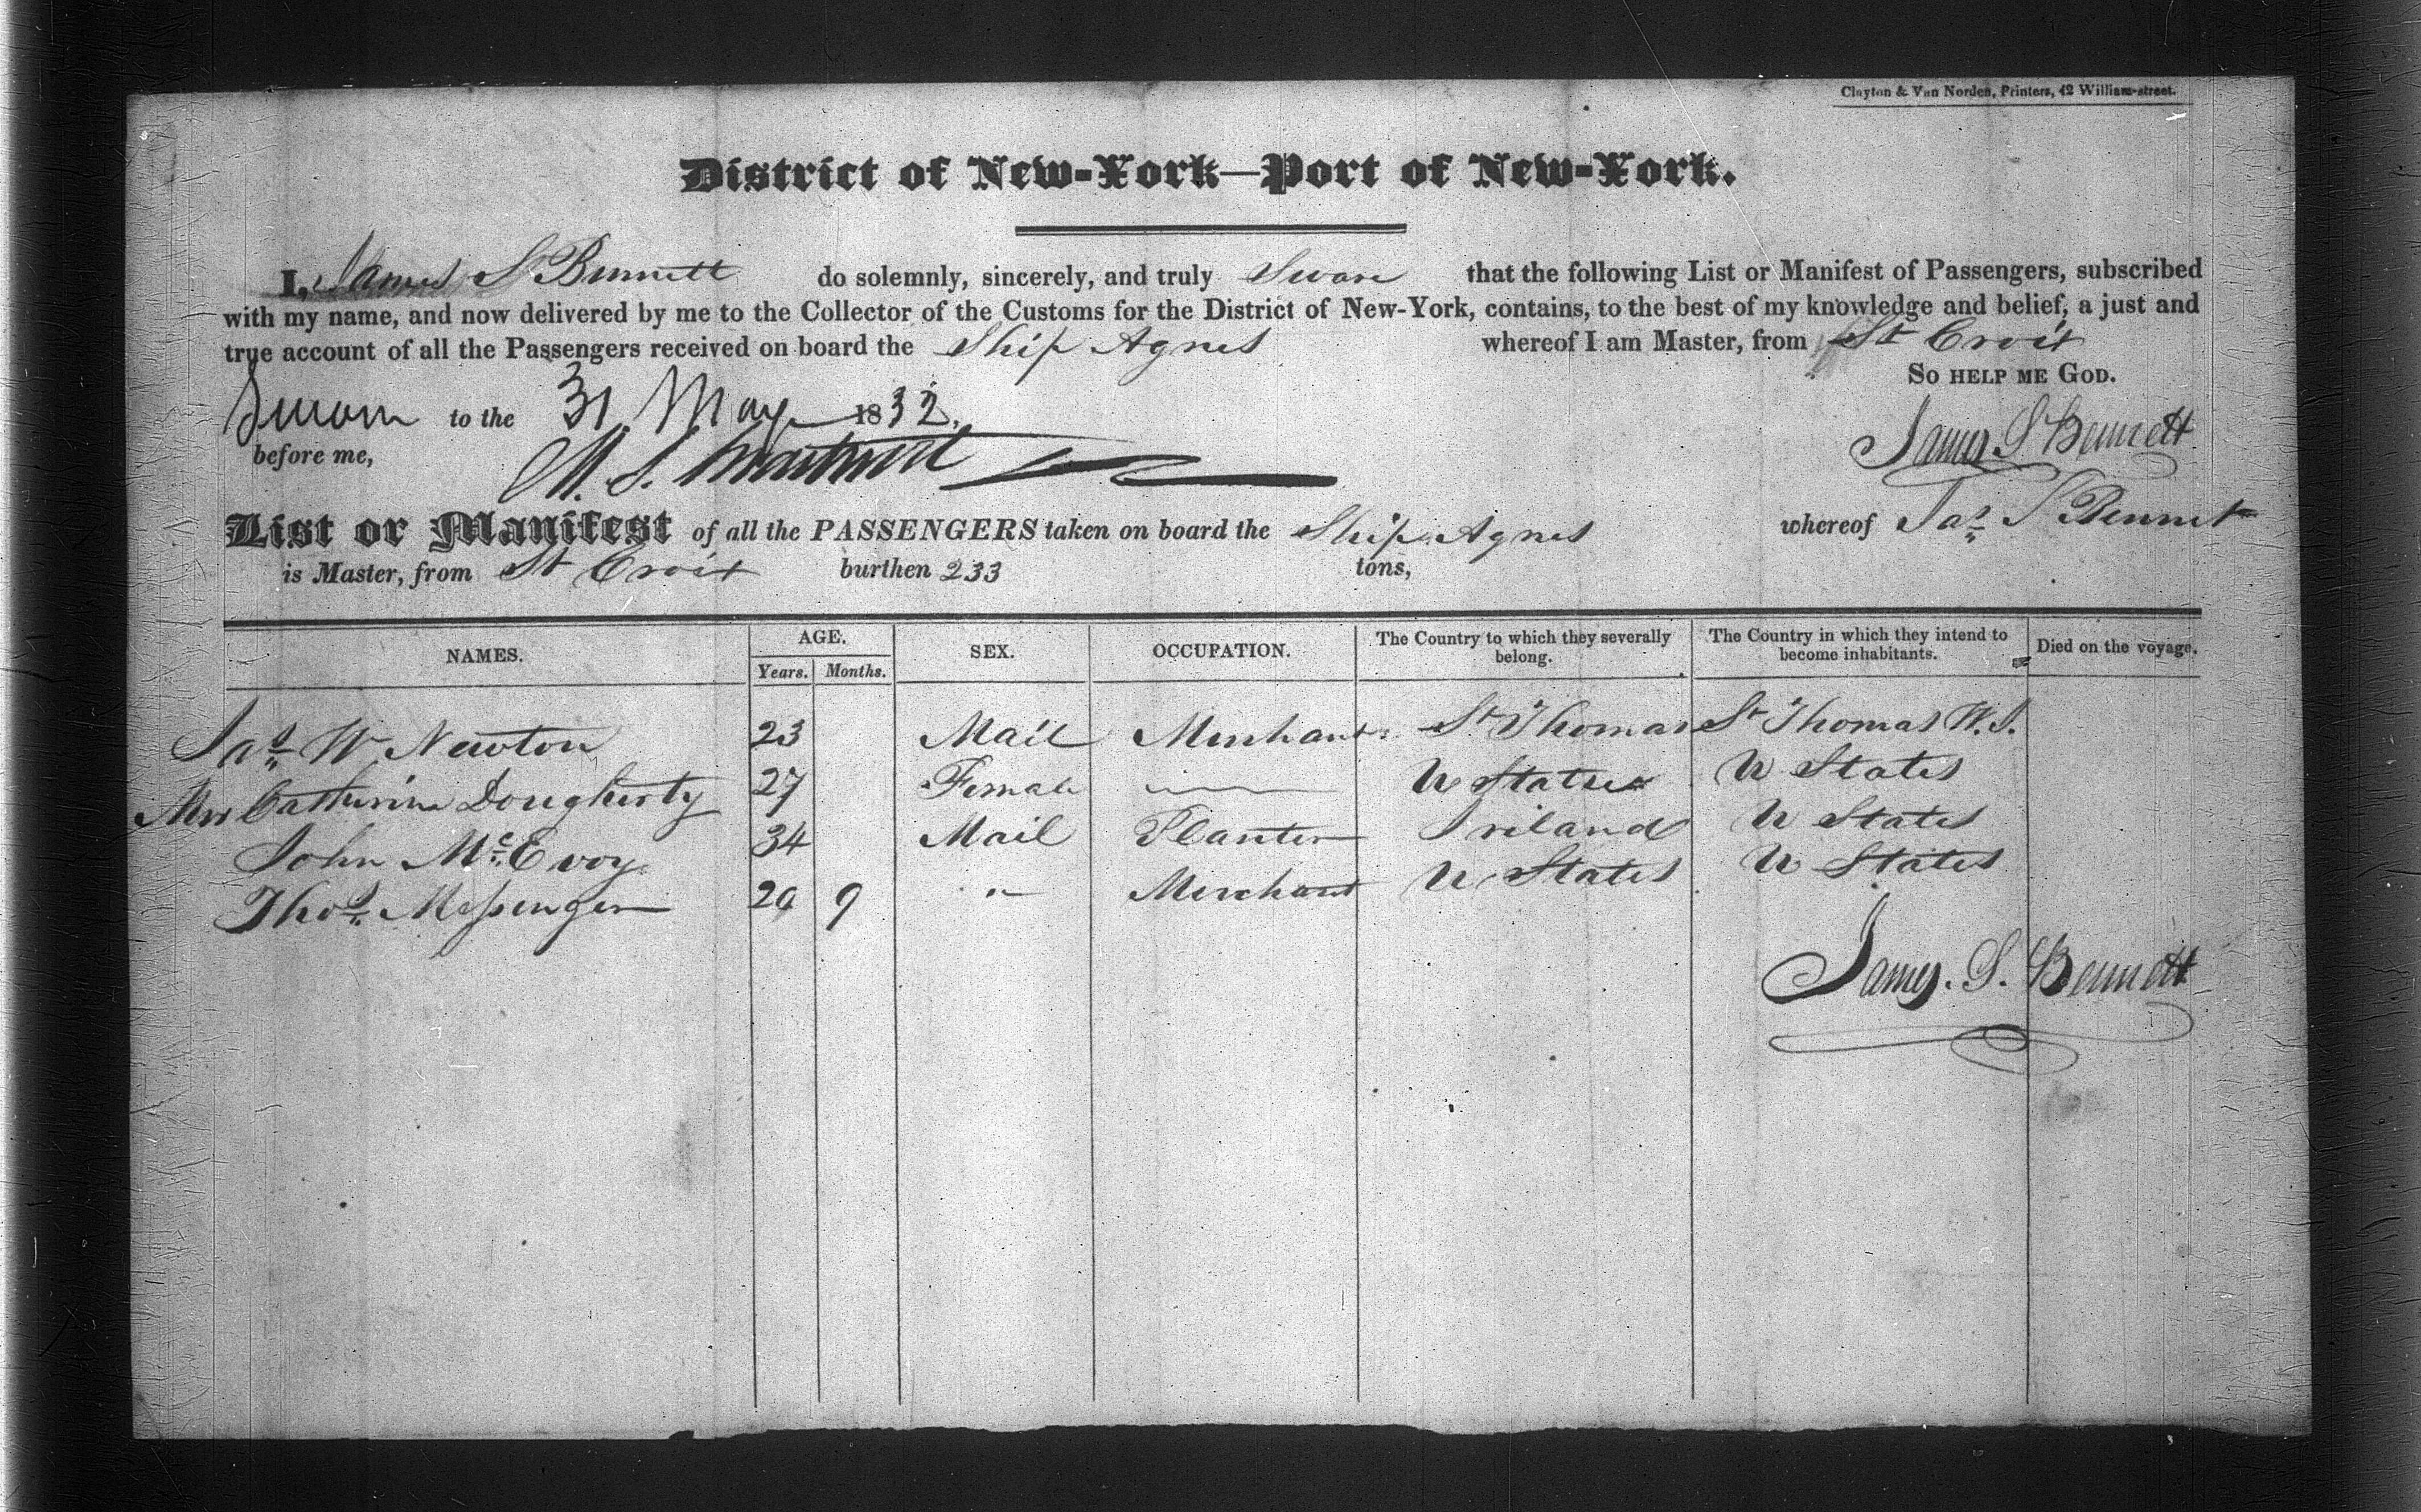 Clayton & Van Norden, Printers, 42 William-street.
District of New-York—Port of New-York.
I, James S Bennett do solemnly, sincerely, and truly Swear that the following List or Manifest of Passengers, subscribed
with my name, and now delivered by me to the Collector of the Customs for the District of New-York, contains, to the best of my knowledge and belief, a just and
true account of all the Passengers received on board the Ship Agnes whereof I am Master, from St Croix
So help me God.
Sworn to the 31 May 1832.
before me, M. S.
James S Bennett
List or Manifest of all the PASSENGERS taken on board the Ship Agnes whereof Jas S Bennet
is Master, from St Croix burthen 233 tons,
NAMES. AGE. Years. Months. SEX. OCCUPATION. The Country to which they severally belong. The Country in which they intend to become inhabitants. Died on the voyage.
Jas W Newton 23 Mail Merchant St Thomas St Thomas W.I.
Mrs Catherine Dougherty 27 Female U States U States
John McEvoy 34 Mail Planter Ireland U States
Thos Messenger 20 9 " Merchant U States U States
James. S. Bennett